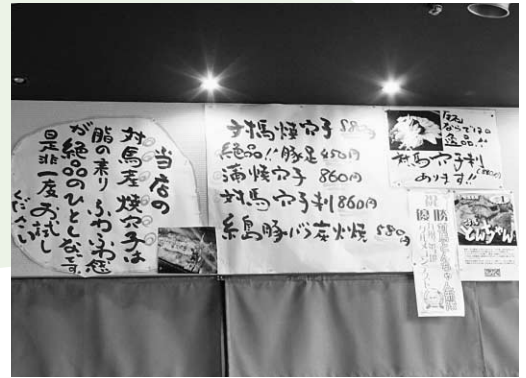 当店の
対馬産焼穴子は
脂の乗りふわふわ感
が絶品のひとしなです。
是非一度お試し
ください
対馬焼穴子 880円
絶品!!豚足450円
蒲焼穴子 860円
対馬穴子刺860円
糸島豚バラ炭火焼 580円
ならではの
逸品!!
対馬穴子刺
あります!!
とんちゃん